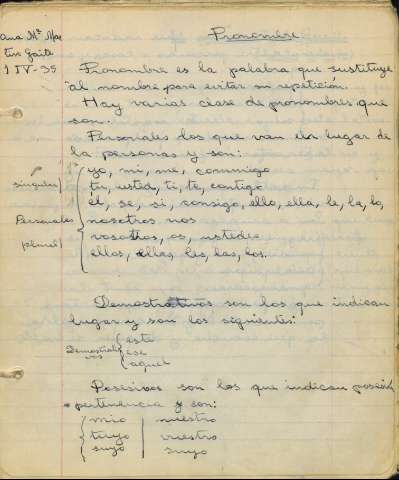 Ana Mª Mar
tín Gaite
1 IV-35
Pronombre
Pronombre es la palabra que sustituye
al nombre para evitar su repetición.
Hay varias clase de pronombres que
son.
Personales los que van en lugar de
la personas y son:
singular
Personales
plural
yo, mi, me, conmigo
tu, usted, ti, te, contigo
él, se, si, consigo, ello, ella, le, la, lo,
nosotros nos
vosotros, os, ustedes
ellos, ellas, les, las, los.
Demostrativos son los que indican
lugar y son los siguientes:
Demostrativos
este
ese
aquel
Posesivos son los que indican posesión
pertenencia y son:
mio nuestro
tuyo vuestro
suyo suyo